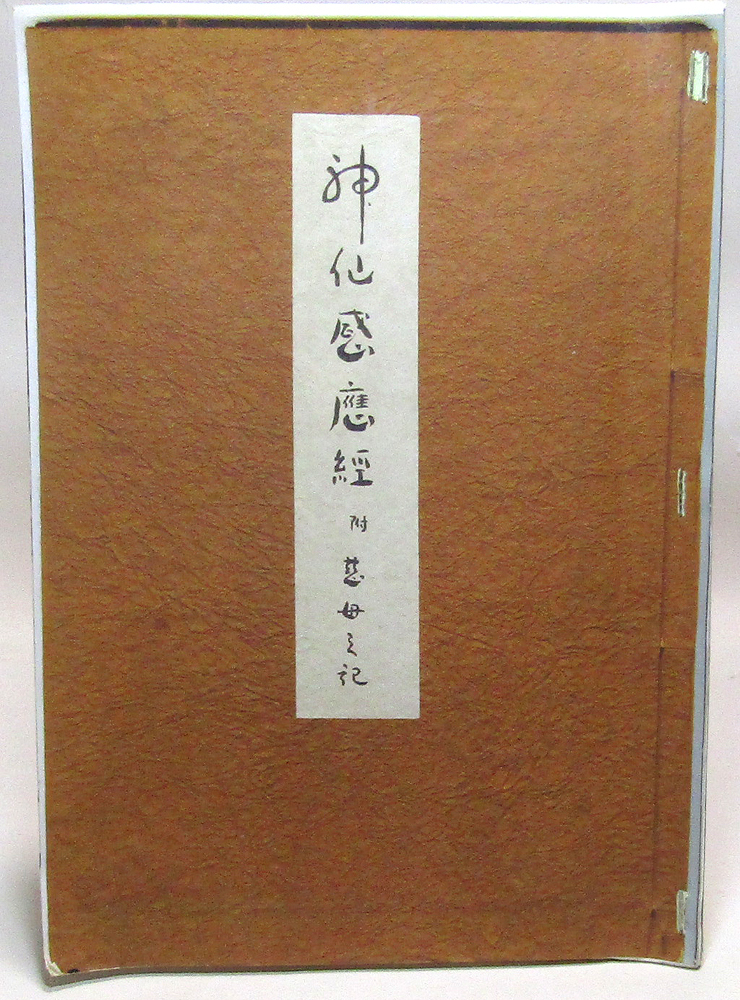 神仙感應經 附 慈母之記